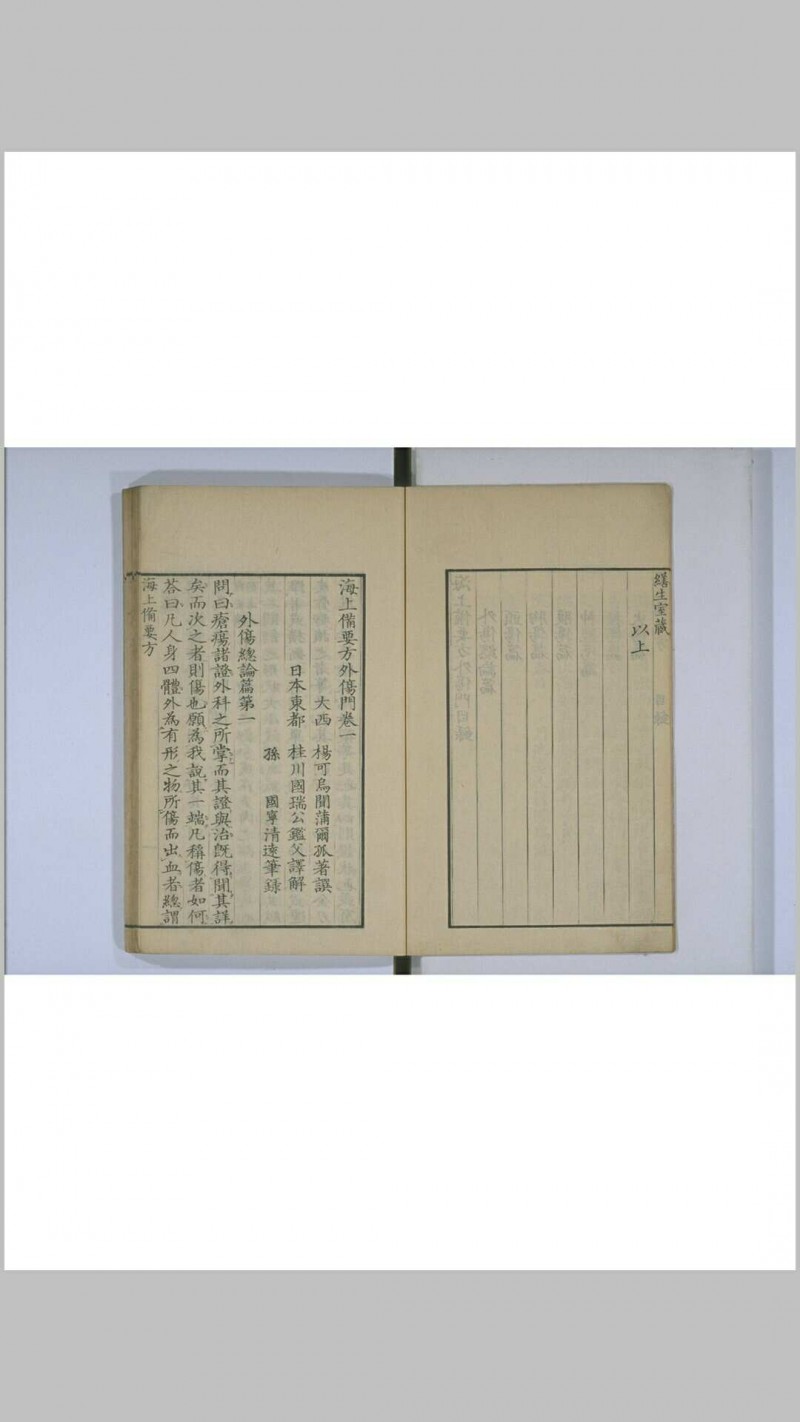 繕生室藏
以上
海上備要方外傷門卷一
大西 楊可烏聞蒲爾孤著譔
日本東都 桂川國瑞公鑑父譯解
孫 國寧清遠筆録
外傷總論篇第一
問曰瘡瘍諸證外科之所掌而其證與治既得聞其詳
矣而次之者則傷也願為我說其一端凡稱傷者如何
荅曰凡人身四體外為有形之物所傷而出血者總謂
海上備要方